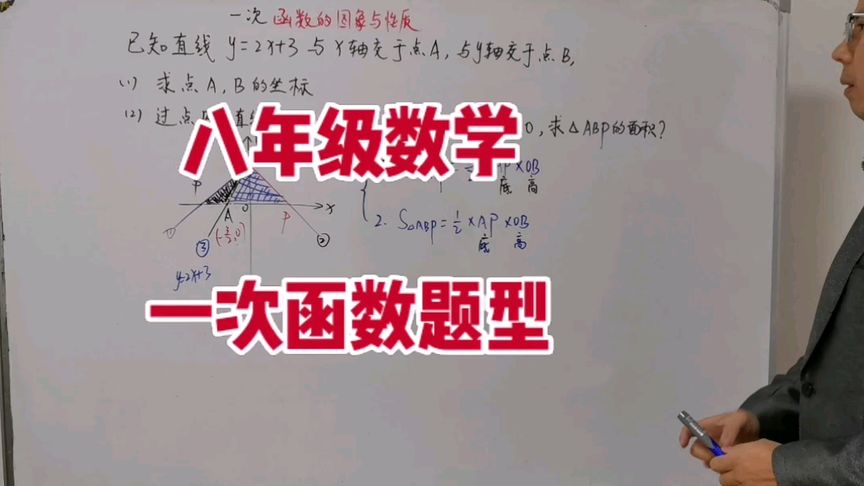 一次函数的图象与性质
已知直线 y=2x+3 与 x轴交于点A, 与y轴交于点B,
(1) 求点A, B的坐标
(2) 过点 0, 求△ABP的面积?
八年级数学
P ×OB
底 高
P A 0 P x
(-3/2,0)
① ③ ②
2. S△ABP=1/2×AP×OB
底 高
y=2x+3
一次函数题型